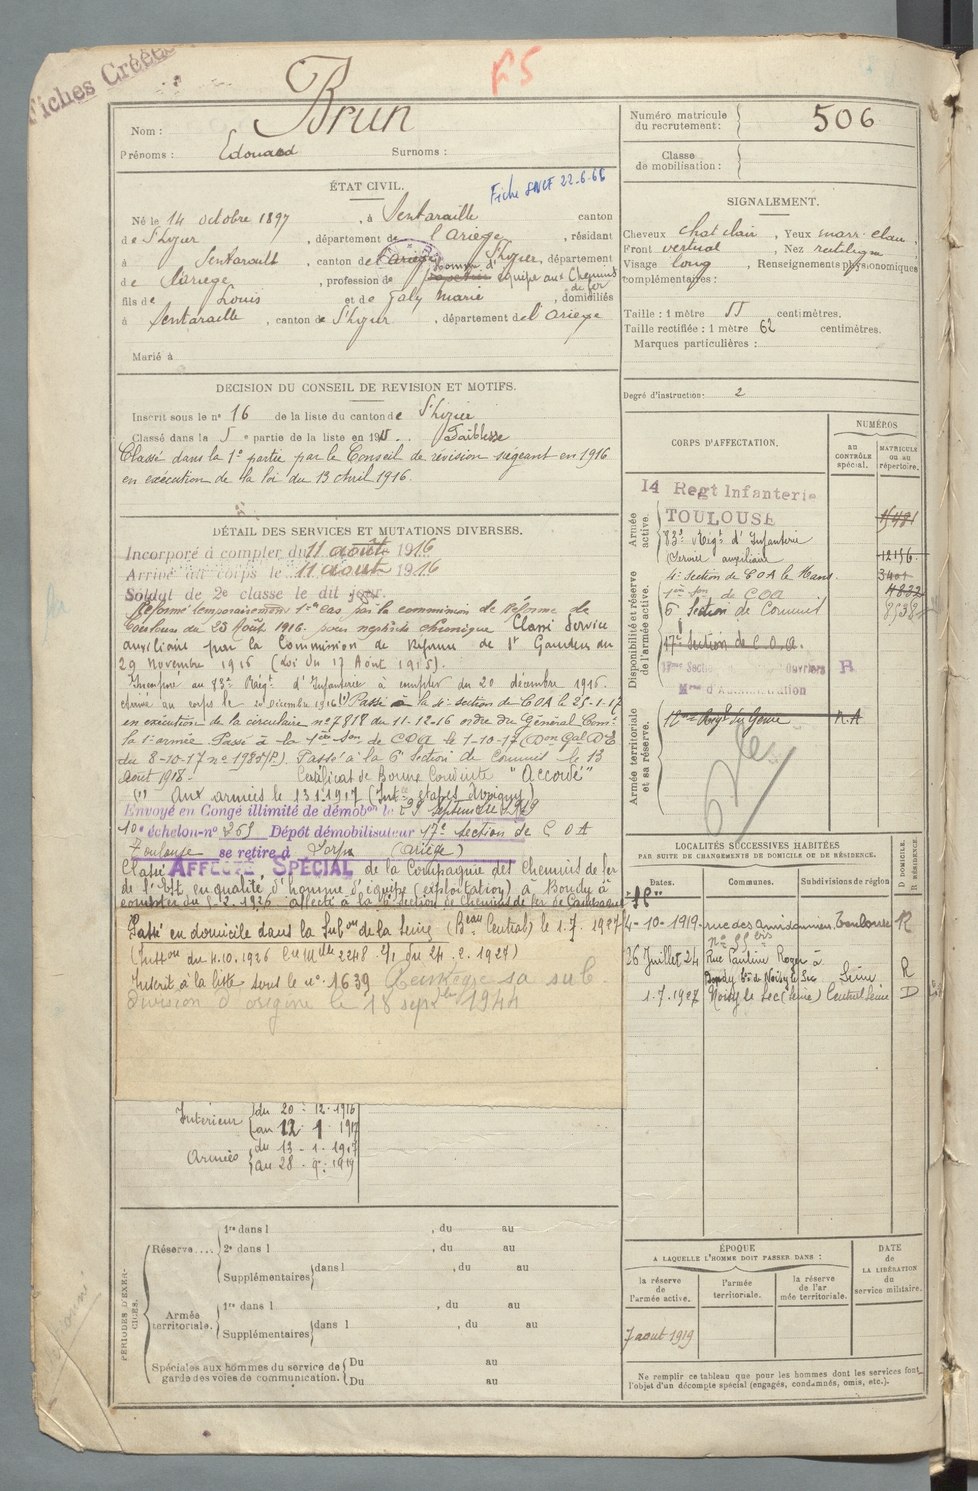 Fiches Créées
F5
Nom : Brun
Prénoms : Edouard Surnoms :
Numéro matricule du recrutement : 506
Classe de mobilisation :
ÉTAT CIVIL.
Fiche SNCF 22-6-66
Né le 14 octobre 1897, à Sentaraille canton
de St Lizier, département de l'Ariège, résidant
à Sentaraille, canton de l'Ariège St Lizier, département
de l'Ariège, profession de homme d'équipe aux Chemins de fer
fils de Louis et de Galy Marie, domiciliés
à Sentaraille, canton de St Lizier, département de l'Ariège
Marié à
SIGNALEMENT.
Cheveux chat clair, Yeux marr. clair.
Front vertical, Nez rectiligne
Visage long, Renseignements physionomiques
complémentaires :
Taille : 1 mètre 55 centimètres.
Taille rectifiée : 1 mètre 62 centimètres.
Marques particulières :
Degré d'instruction : 2
DECISION DU CONSEIL DE REVISION ET MOTIFS.
Inscrit sous le n° 16 de la liste du canton de St Lizier
Classé dans la 5 e partie de la liste en 19 Faiblesse
Classé dans la 1e partie par le Conseil de révision siégeant en 1916
en exécution de la loi du 13 Avril 1916.
DÉTAIL DES SERVICES ET MUTATIONS DIVERSES.
Incorporé à compter du 11 août 1916
Arrivé au corps le 11 août 1916
Soldat de 2e classe le dit jour.
Réformé temporairement 1re cas par la commission de réforme de
Toulouse du 23 Août 1916. pour néphrite chronique Classé Service
auxiliaire par la Commission de Réforme de St Gaudens du
29 Novembre 1916 (Loi du 17 Août 1915).
Incorporé au 83e Régt d'Infanterie à compter du 20 décembre 1916.
arrivé au corps le 20 décembre 1916 (1) Passé à la 4e section de COA le 25-1-17
en exécution de la circulaire n° 7818 du 11-12-16 ordre du Général Comt
la 1e armée. Passé à la 1ère Son de COA le 1-10-17
du 8-10-17 n° 19857P.) Passé à la 6e Section de Commis le 13
Août 1918 - Certificat de Bonne Conduite "Accordé"
(1) Aux armées le 13 1 1917
Envoyé en Congé illimité de démobon le 29 septembre 1919
10e échelon - n° 265 Dépôt démobilisateur 17e section de COA
Toulouse se retire à Lorp (Ariège)
Classé AFFECTÉ SPÉCIAL de la Compagnie des Chemins de fer
de l'Est, en qualité d'homme d'équipe (exploitation) à Bondy à
compter du 5-2-1926 affecté à la 6e Section de Chemins de fer de Campagne
Passé en domicile dans la Subon de la Seine (Beau Central) le 1.7.1927
(Instton du 4.10.1926 24.2.1927)
Inscrit à la liste sous le n° 1639 Réintègre sa sub
division d'origine le 18 septbre 1944
Intérieur du 20-12-1916
au 12 1 1917
Armées du 13-1-1917
au 28-9-1919
CORPS D'AFFECTATION.
NUMÉROS
au CONTRÔLE spécial.
MATRICULE ou au répertoire.
Armée active.
14 Regt Infanterie
TOULOUSE
83e Régt d'Infanterie 12156
Service auxiliaire
Disponibilité et réserve de l'armée active.
4e section de COA le Mans. 3401
1ère Son de COA 4832
6 Section de Commis
17e Section de C.O.A.
Ouvriers B
Mres d'Administration
Armée territoriale et sa réserve.
Régt du Génie N.A
LOCALITÉS SUCCESSIVES HABITÉES
PAR SUITE DE CHANGEMENTS DE DOMICILE OU DE RÉSIDENCE.
Dates. Communes. Subdivisions de région D DOMICILE. R RÉSIDENCE
4-10-1919 rue des Amidonniers Toulouse R
26 Juillet 24 Rue Pauline Roger à
Bondy Noisy le Sec Seine R
1.7.1927 Noisy le Sec (Seine) Central Seine D
PÉRIODES D'EXERCICES.
Réserve.... 1re dans l , du au
2e dans l , du au
Supplémentaires dans l , du au
Armée territoriale. 1re dans l , du au
Supplémentaires dans l , du au
Spéciales aux hommes du service de garde des voies de communication. Du au
Du au
ÉPOQUE
A LAQUELLE L'HOMME DOIT PASSER DANS :
DATE de LA LIBÉRATION du service militaire.
la réserve de l'armée active.
l'armée territoriale.
la réserve de l'armée territoriale.
7 aout 1919
Ne remplir ce tableau que pour les hommes dont les services font
l'objet d'un décompte spécial (engagés, condamnés, omis, etc.).